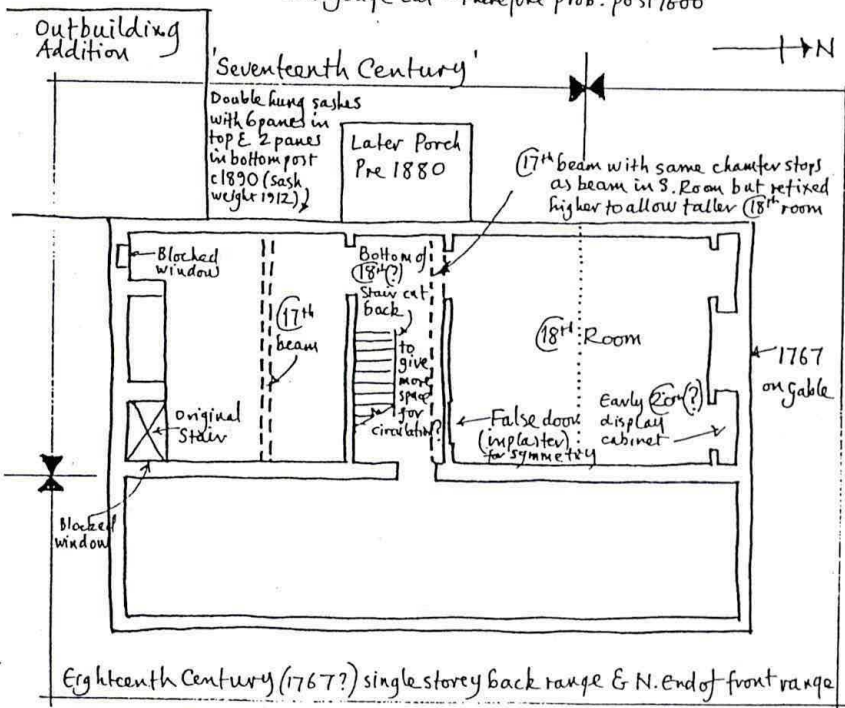 Therefore prob. post 1600
Outbuilding
Addition
N
'Seventeenth Century'
Double hung sashes
with 6 panes in
top & 2 panes
in bottom post
c1890 (sash
weight 1912)
Later Porch
Pre 1880
17th beam with same chamfer stops
as beam in S. Room but refixed
higher to allow taller 18th room
Blocked
window
17th
beam
Bottom of
18th(?)
Stair cut
back
to
give
more
space
for
circulation?
18th Room
1767
on gable
Original
Stair
False door
(in plaster)
for symmetry
Early 20th(?)
display
cabinet
Blocked
window
Eighteenth Century (1767?) single storey back range & N. End of front range